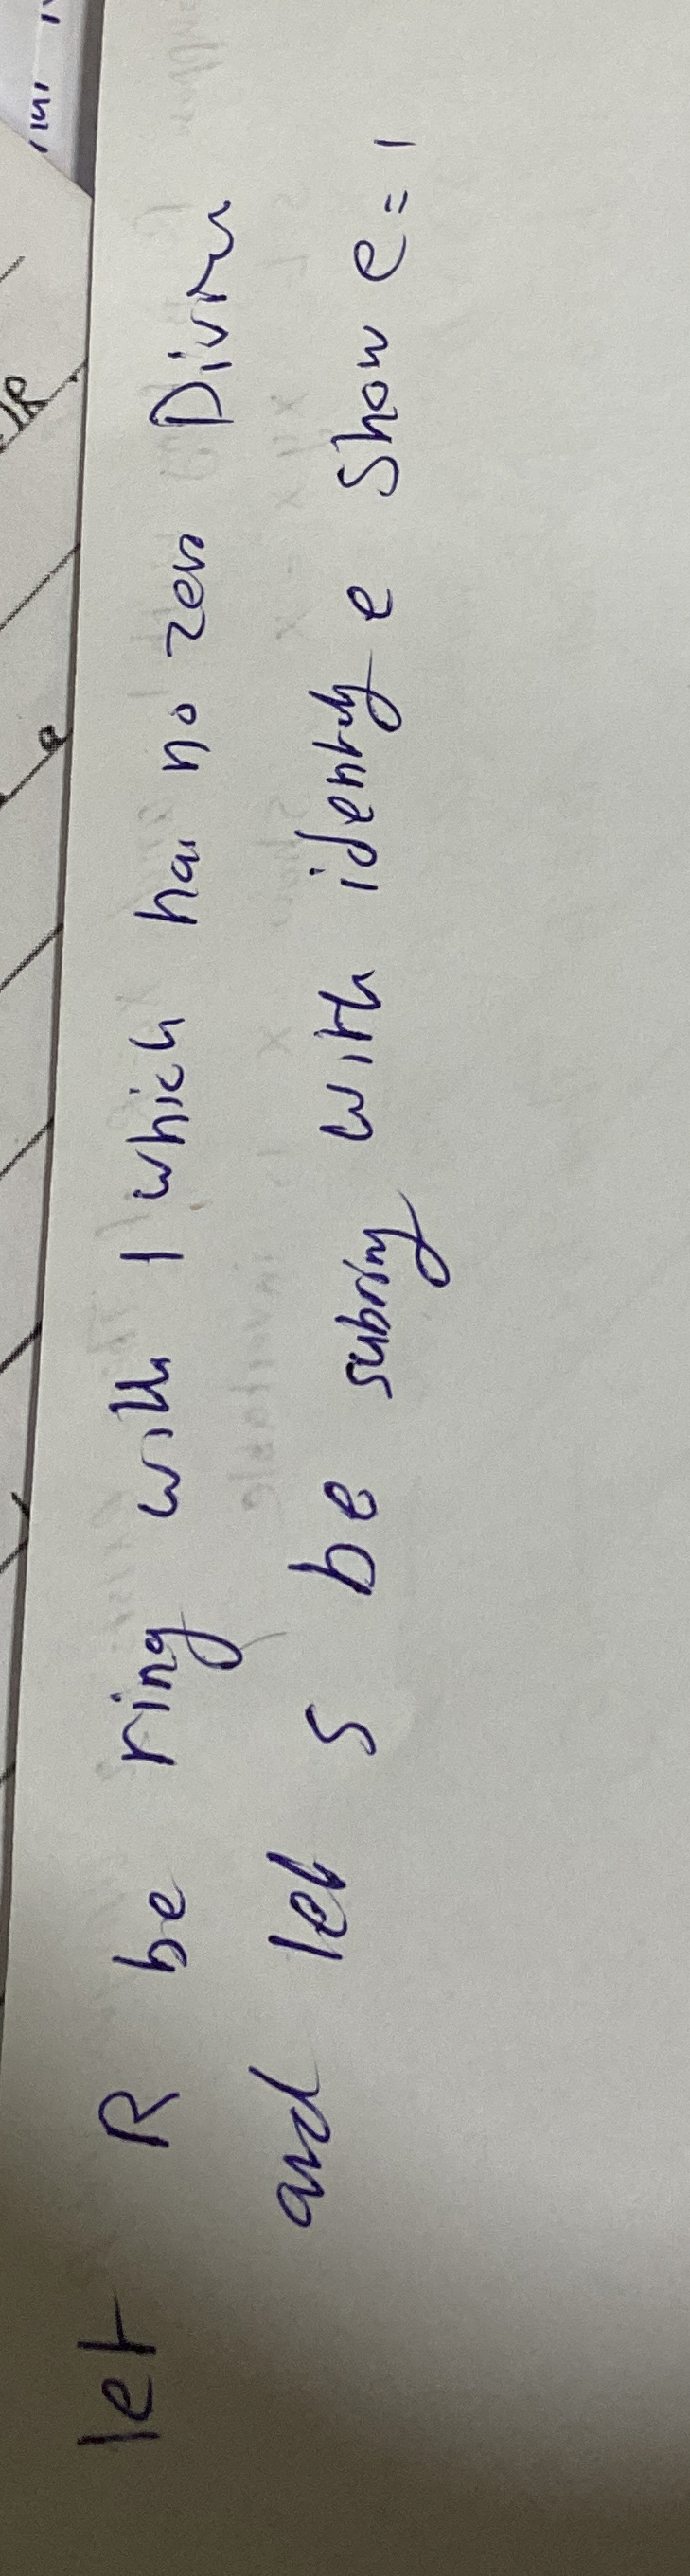 let R be ring with 1 which ha no zero Divisor
and let S be subring with identity e show e = 1